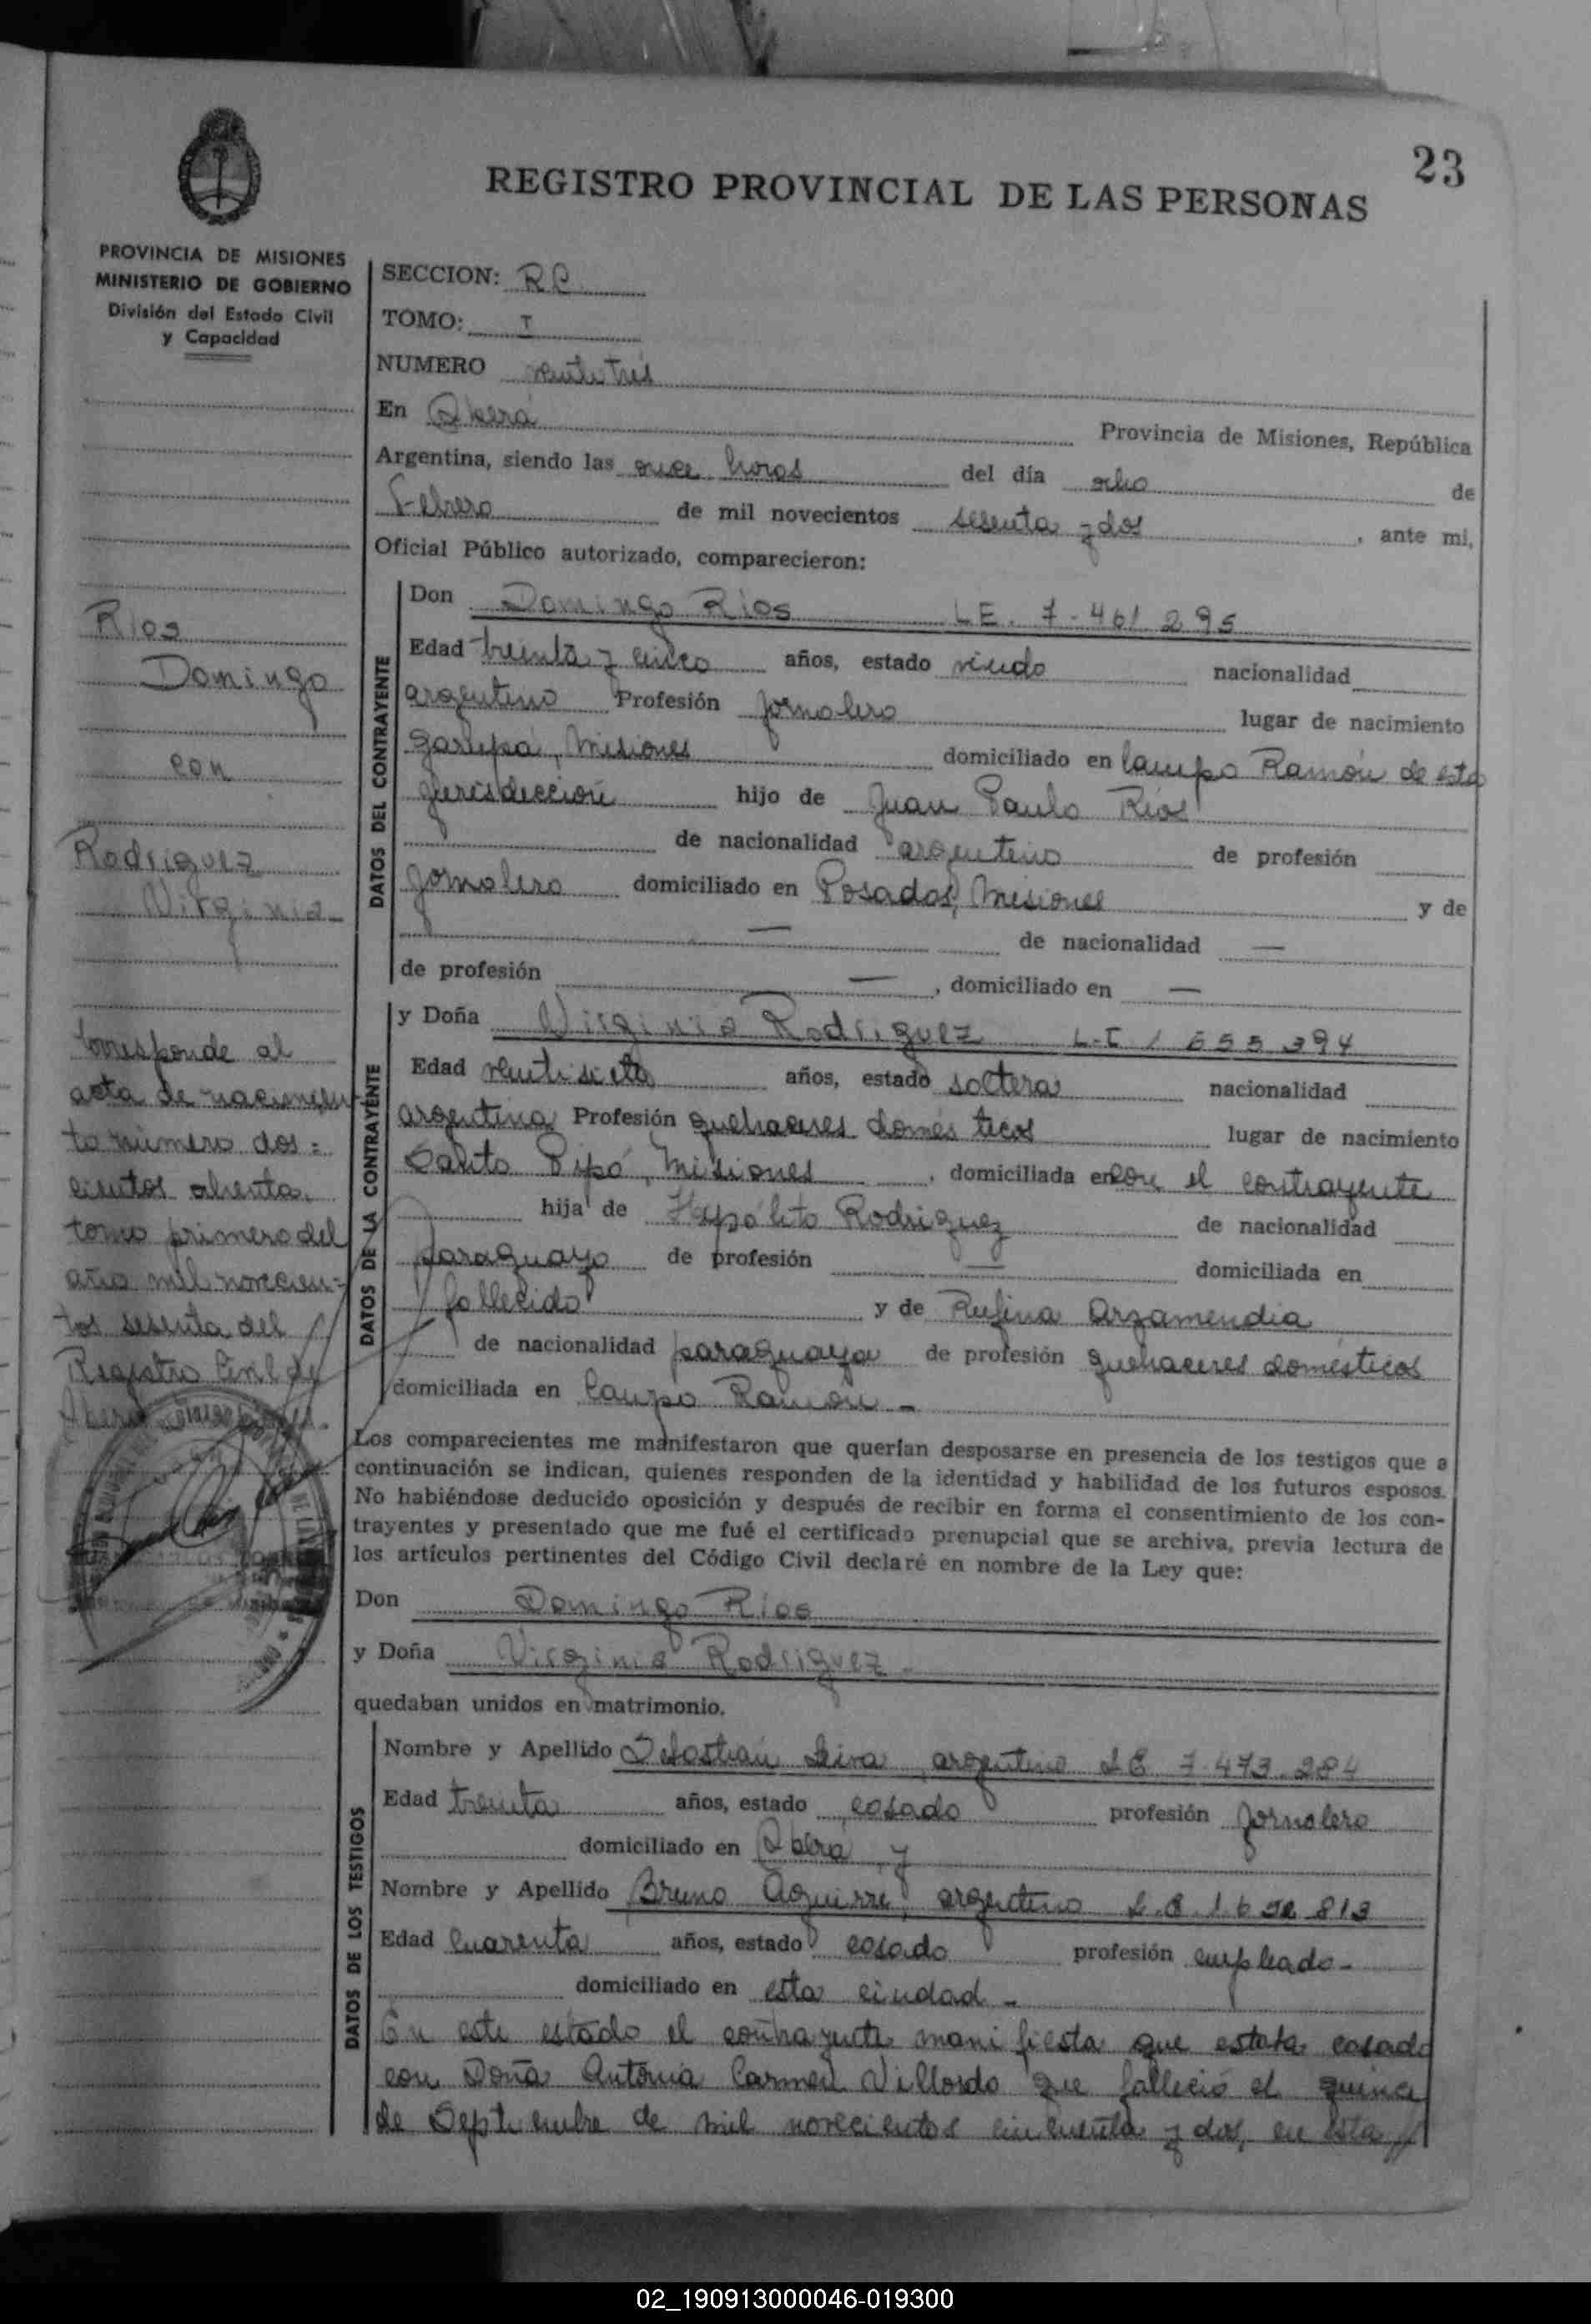 23
REGISTRO PROVINCIAL DE LAS PERSONAS
PROVINCIA DE MISIONES
MINISTERIO DE GOBIERNO
División del Estado Civil
y Capacidad
SECCION: R.C.
TOMO: I
NUMERO veintitrés
En Oberá Provincia de Misiones, República
Argentina, siendo las once horas del día ocho de
Febrero de mil novecientos sesenta y dos, ante mi,
Oficial Público autorizado, comparecieron:
Rios
Domingo
con
Rodriguez
Virginia
Corresponde al
acta de nacimien-
to número dos=
cientos ochenta,
tomo primero del
año mil novecien=
tos sesenta del
Registro Civil de
DATOS DEL CONTRAYENTE
Don Domingo Rios LE. 7.461.295
Edad treinta y cinco años, estado viudo nacionalidad
argentino Profesión jornalero lugar de nacimiento
Garupá, Misiones domiciliado en Campo Ramón de esta
jurisdicción hijo de Juan Paulo Rios
de nacionalidad argentino de profesión
jornalero domiciliado en Posadas, Misiones y de
— de nacionalidad —
de profesión —, domiciliado en —
DATOS DE LA CONTRAYENTE
y Doña Virginia Rodriguez L.C 1 655 394
Edad veintisiete años, estado soltera nacionalidad
argentina Profesión quehaceres domésticos lugar de nacimiento
Santo Pipó, Misiones, domiciliada en con el contrayente
hija de Hipólito Rodriguez de nacionalidad
paraguayo de profesión — domiciliada en
fallecido y de Rufina Arzamendia
de nacionalidad paraguaya de profesión quehaceres domésticos
domiciliada en Campo Ramón -
Los comparecientes me manifestaron que querían desposarse en presencia de los testigos que a
continuación se indican, quienes responden de la identidad y habilidad de los futuros esposos.
No habiéndose deducido oposición y después de recibir en forma el consentimiento de los con-
trayentes y presentado que me fué el certificado prenupcial que se archiva, previa lectura de
los artículos pertinentes del Código Civil declaré en nombre de la Ley que:
Don Domingo Rios
y Doña Virginia Rodriguez
quedaban unidos en matrimonio.
DATOS DE LOS TESTIGOS
Nombre y Apellido Sebastián Leiva, argentino LE 7.473.284
Edad treinta años, estado casado profesión jornalero
domiciliado en Oberá y
Nombre y Apellido Bruno Aguirre, argentino
Edad cuarenta años, estado casado profesión empleado-
domiciliado en esta ciudad -
En este estado el contrayente manifiesta que estaba casado
con Doña Antonia Carmen Villordo que falleció el quince
de Septiembre de mil novecientos cincuenta y dos, en esta
02_190913000046-019300